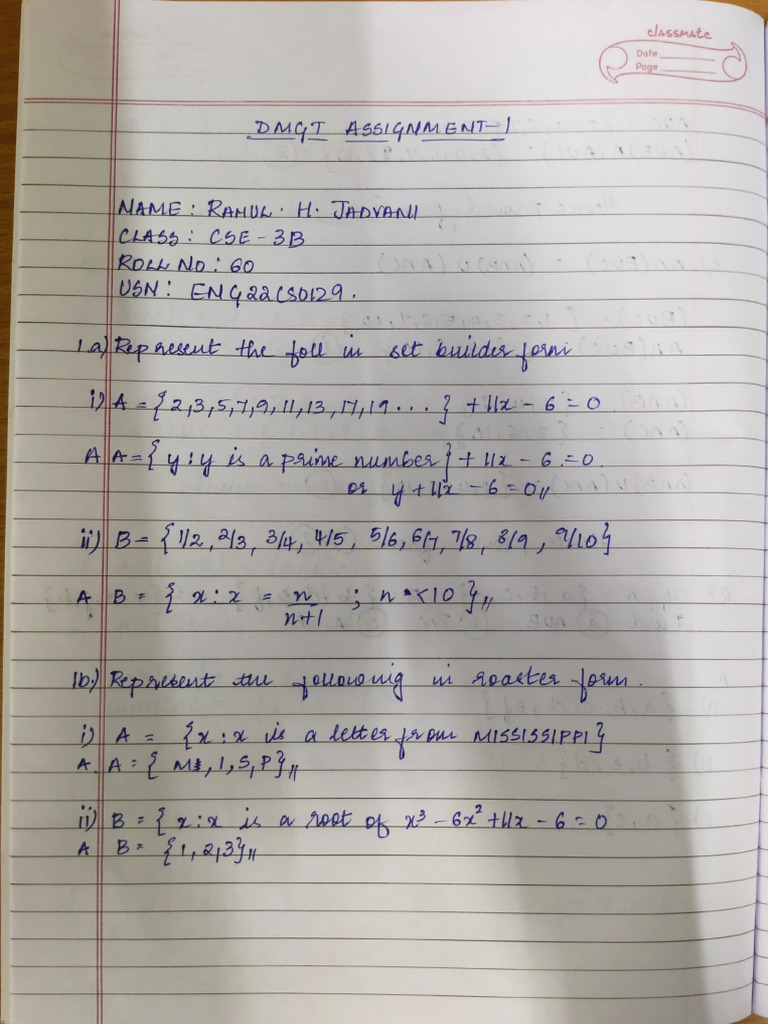 classmate
Date
Page
DMGT ASSIGNMENT-1
NAME : RAHUL . H. JADVANI
CLASS : CSE - 3B
ROLL NO : 60
USN : ENG22CS0129.
1.a) Represent the foll in set builder form
i) A = {2,3,5,7,9,11,13,17,19 . . . } + 11x - 6 = 0
A A = { y : y is a prime number } + 11x - 6 = 0
or y + 11x - 6 = 0
ii) B = {1/2, 2/3, 3/4, 4/5, 5/6, 6/7, 7/8, 8/9, 9/10}
A. B = { x : x = n/n+1 ; n < 10 }
1b.) Represent the following in roaster form.
i) A = {x : x is a letter from MISSISSIPPI}
A. A = { M, I, S, P}
ii) B = {x : x is a root of x³ - 6x² + 11x - 6 = 0
A B = {1, 2, 3}